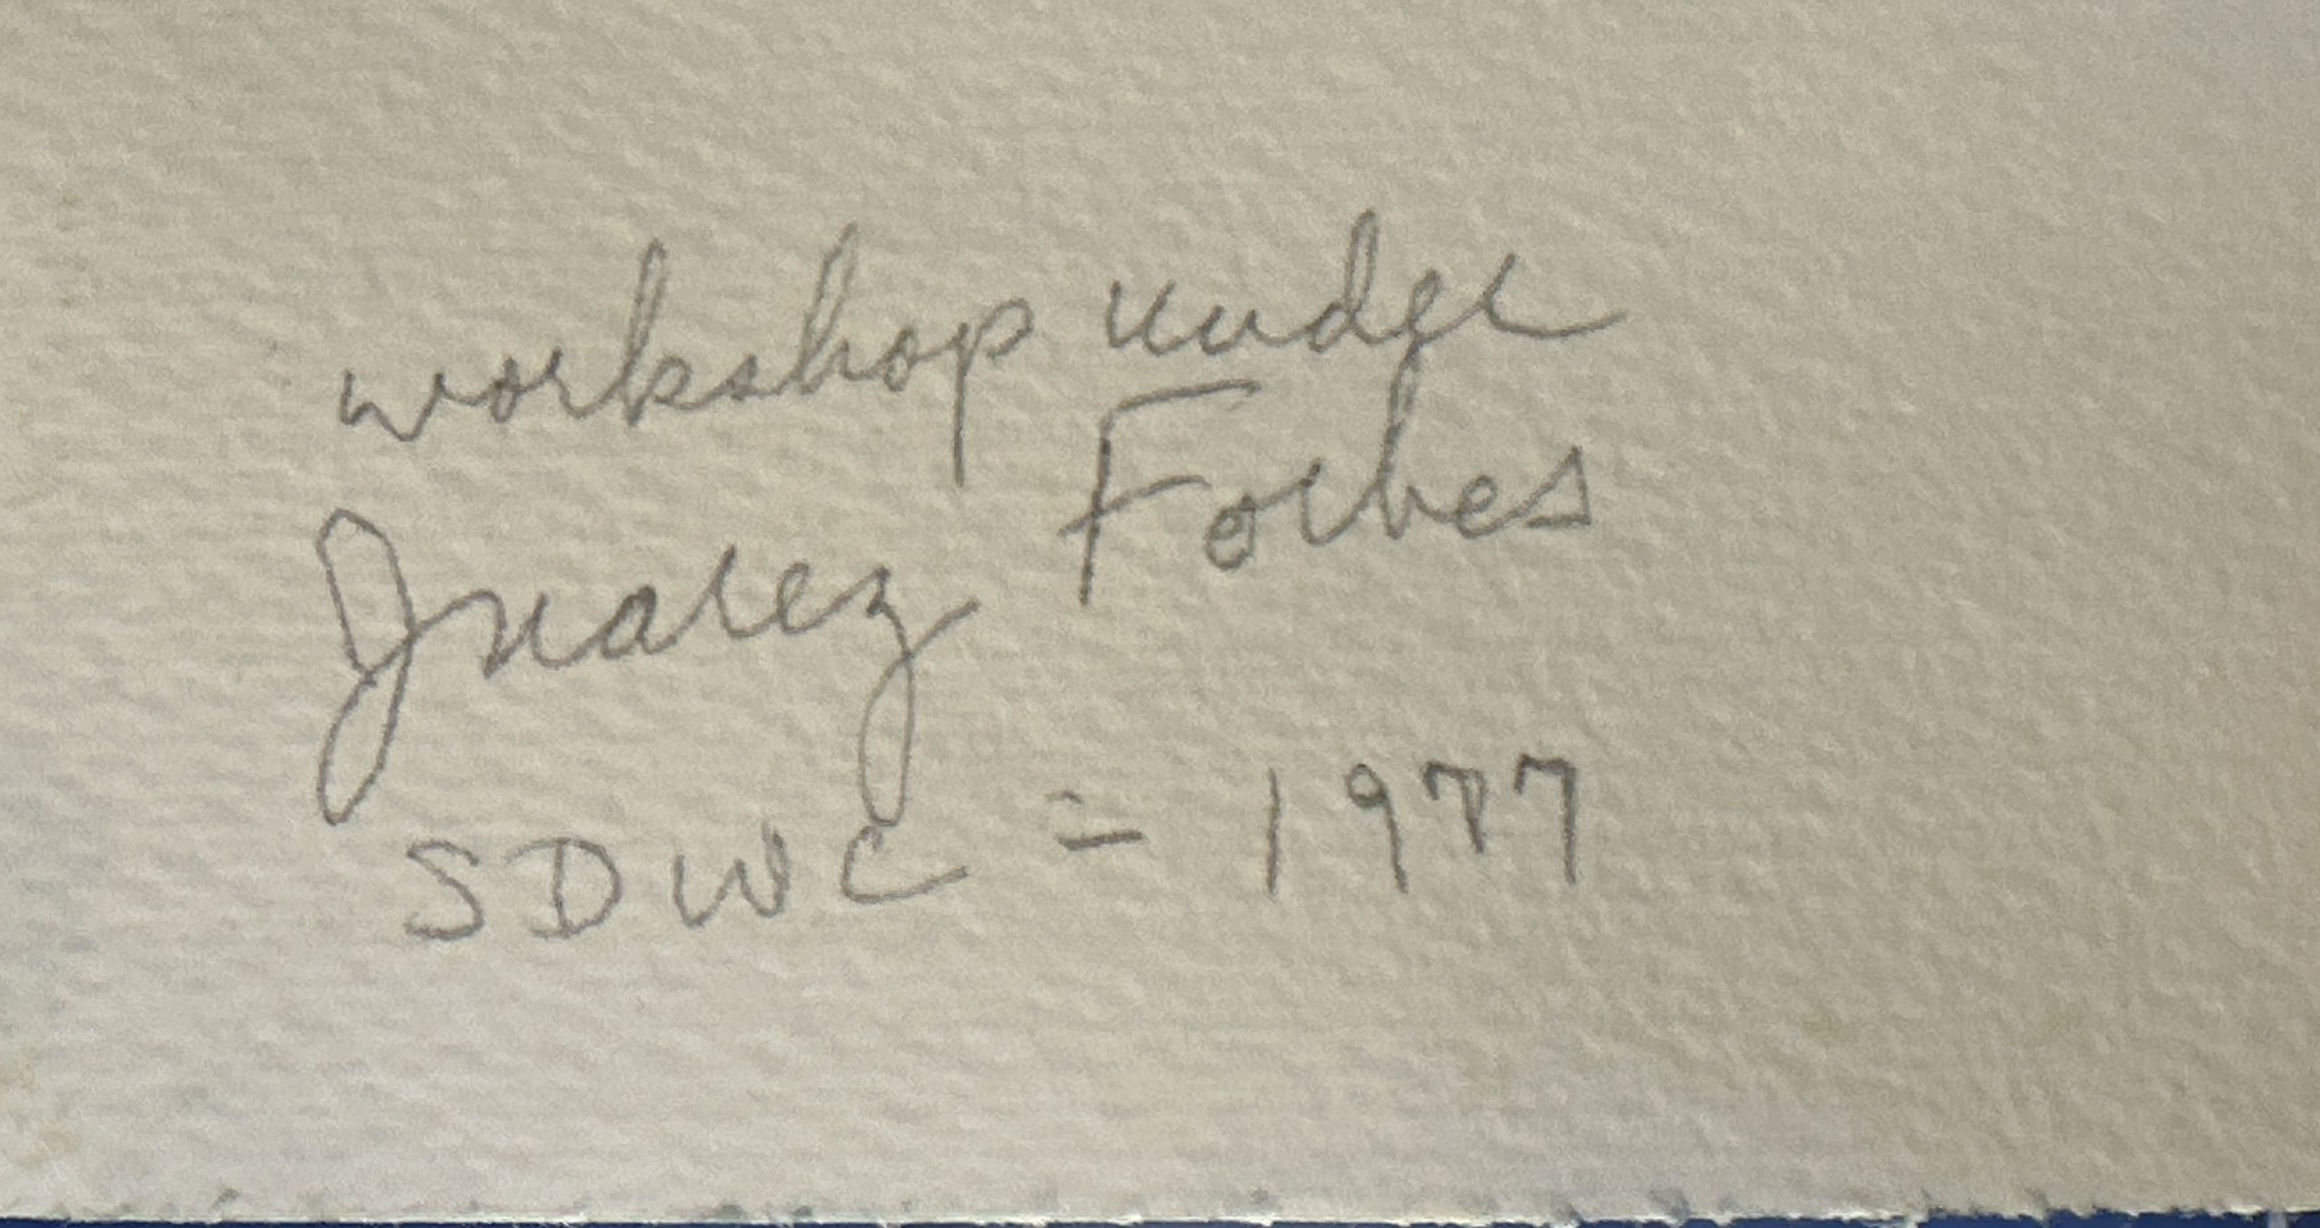 workshop under
Juarez Forbes
SDWC = 1977